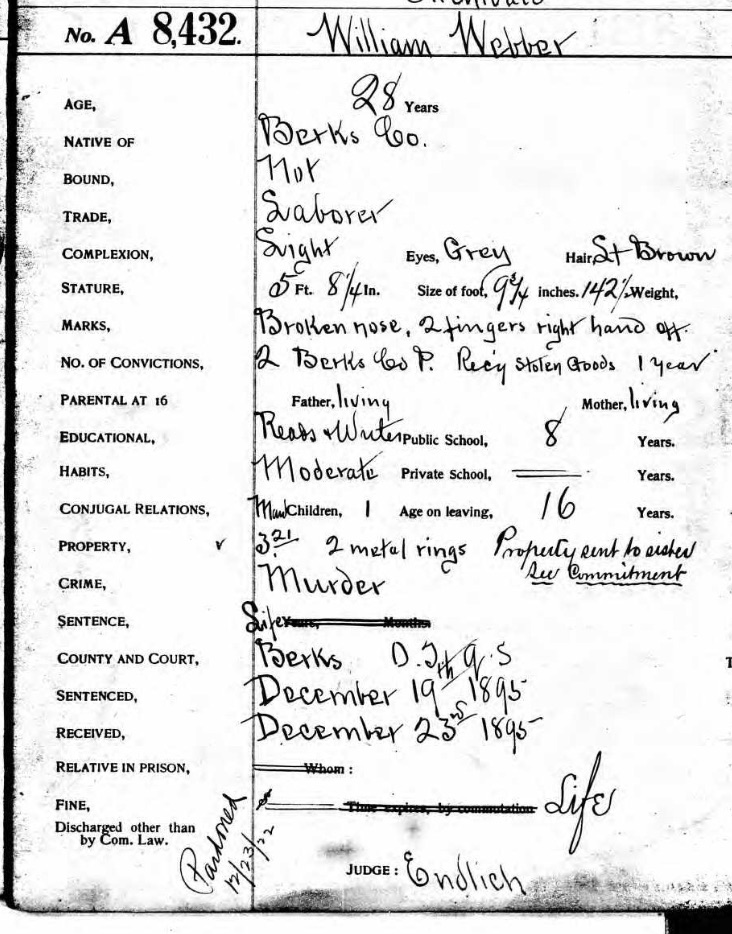 No. A 8,432. William Webber
AGE, 28 Years
NATIVE OF Berks Co.
BOUND, Not
TRADE, Laborer
COMPLEXION, Light Eyes, Grey Hair, Lt Brown
STATURE, 5 Ft. 8 1/4 In. Size of foot, 9 3/4 inches. 142 1/2 Weight,
MARKS, Broken nose, 2 fingers right hand off.
NO. OF CONVICTIONS, 2 Berks Co P. Rec'g Stolen Goods 1 year
PARENTAL AT 16 Father, living Mother, living
EDUCATIONAL, Reads & Writes Public School, 8 Years.
HABITS, Moderate Private School, Years.
CONJUGAL RELATIONS, Children, 1 Age on leaving, 16 Years.
PROPERTY, ✓ 3 21 2 metal rings Property sent to sister
See Commitment
CRIME, Murder
SENTENCE, Life Years, Months
COUNTY AND COURT, Berks Q.S
SENTENCED, December 19th 1895
RECEIVED, December 23rd 1895
RELATIVE IN PRISON, Whom :
FINE, $ Time expires, by commutation Life
Discharged other than
by Com. Law.
Pardoned
12/23/22
JUDGE : Endlich